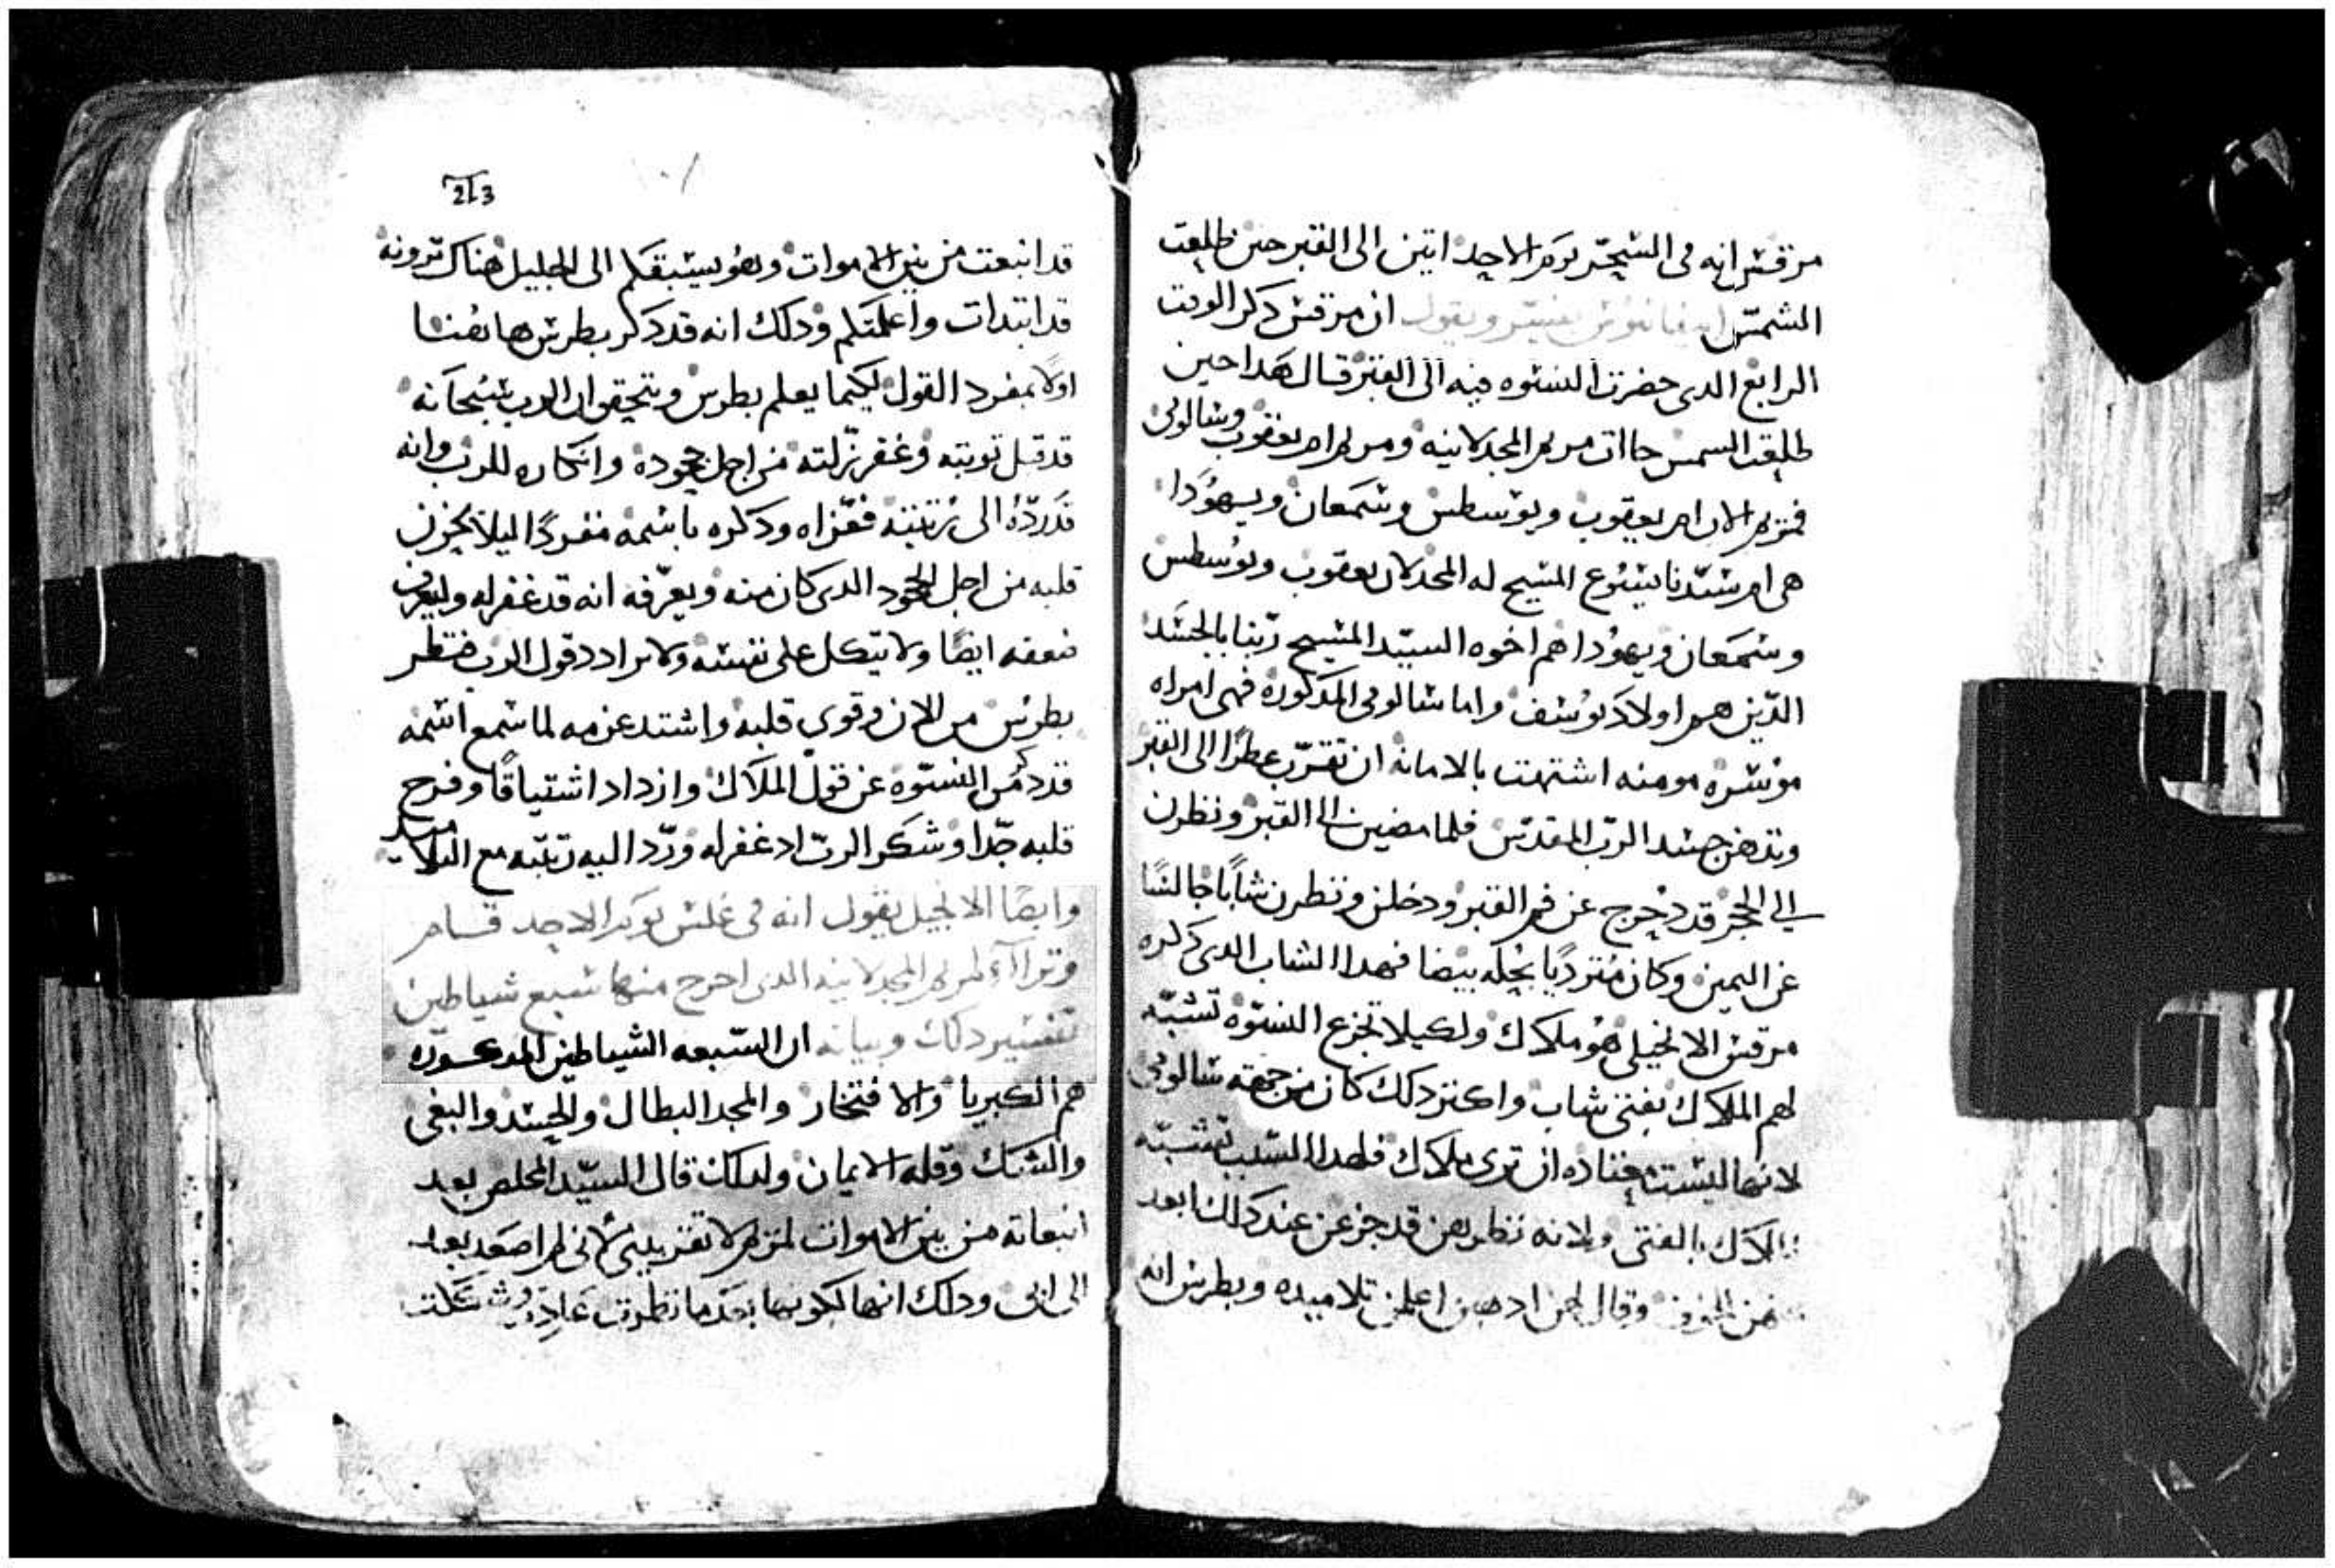 مرقس انه فى السَحَر يوم الاحد اتين الى القبر حين طلعت
الشمس ابيفانيوس يفسر ويقول ان مرقس دكر الوقت
الرابع الدى حضرت النسوه فيه الى القبر قال هدا حين
طلعت الشمس جاات مريم المجدلانيه ومريم ام يعقوب وسالومى
فمريم الان ام يعقوب ويوسطس وسمعان ويهودا
هى ام سيدنا يسوع المسيح له المجد لان يعقوب ويوسطس
وسمعان ويهودا هم اخوه السيد المسيح ربنا بالجسد
الدين هم اولاد يوسف واما سالومى المدكوره فهى امراه
موسره مومنه اشتهت بالامانه ان تقرب عطرًا الى القبر
وتدهن جسد الرب المقدس فلما مضين الى القبر ونظرن
الى الحجر قد دحرج عن فم القبر ودخلن ونظرن شابًا جالسًا
عن اليمين وكان متردّيًا بحله بيضا فهدا الشاب الدى دكره
مرقس الانجيلى هو ملاك ولكيلا تجزع النسوه تشبّه
لهم الملاك بفتى شاب واكتر دلك كان من جهة سالومى
لانها ليست معتاده ان ترى ملاك فلهدا السبب تشبّه
الملاك بالفتى ولانه نظرهن قد جزعن عند دلك ابعد
عنهن الخوف وقال لهن ادهبن اعلمن تلاميده وبطرس انه
213
قد انبعت من بين الاموات وهو يسبقكم الى الجليل هناك ترونه
قد ابتدات واعلمتكم ودلك انه قد دكر بطرس هاهنا
اولًا بمفرد القول لكيما يعلم بطرس ويتحقق ان الرب سبحانه
قد قبل توبته وغفر زلته من اجل جحوده وانكاره للرب وانه
قد ردّه الى رتبته فعزاه ودكره باسمه مفردًا ليلا يحزن
قلبه من اجل الجحود الدى كان منه ويعرّفه انه قد غفر له وليعرف
ضعفه ايضًا ولا يتكل على نفسه ولا يرادد قول الرب
بطرس من الان وقوى قلبه واشتد عزمه لما سمع اسمه
قد دكر من النسوه عن قول الملاك وازداد اشتياقًا وفرح
قلبه جدًا وشكر الرب اد غفر له وردّ اليه رتبته مع التلاميد
وايضًا الانجيل يقول انه فى غلس يوم الاحد قام
وتراآء لمريم المجدلانيه الدى اخرج منها سبع شياطين
تفسير دلك وبيانه ان السبعه الشياطين المدكوره
هم الكبريا والافتخار والمجد البطال والحسد والبغى
والشك وقله الايمان ولدلك قال السيّد المخلص بعد
انبعاته من بين الاموات لمريم لا تقربينى لانى لم اصعد بعد
الى ابى ودلك انها لكونها بعد ما نظرت عادت وشكت